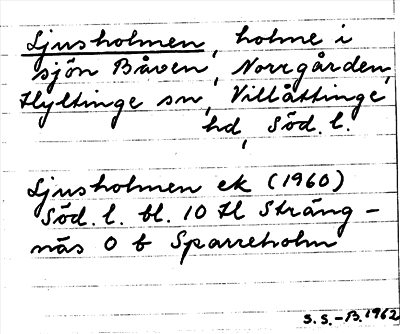 Ljusholmen, holme i
sjön Båven, Norrgården,
Hyltinge sn, Villåttinge
hd, Söd. l.
Ljusholmen ek (1960)
Söd. l. bl. 10 H Sträng-
näs O b Sparreholm
S.S.-B. 1962